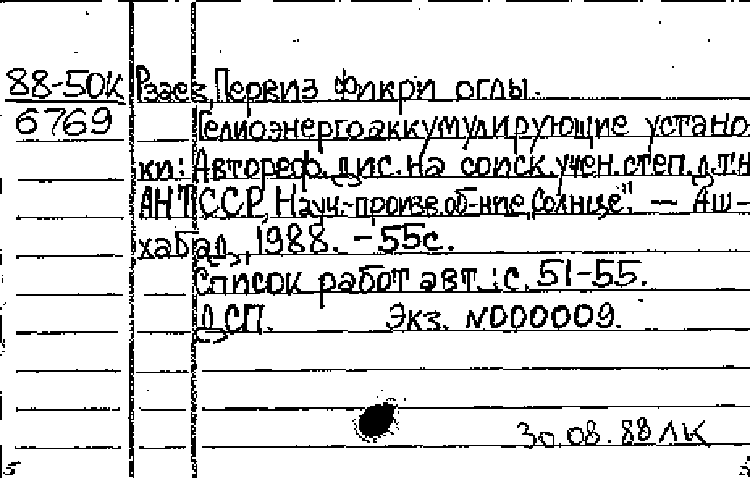 88-50К Рзаев, Первиз Фикри оглы.
6769 Гелиоэнергоаккумулирующие устано
ки: Автореф. дис. на соиск. учен. степ. д.т.н
АН ТССР, Науч.-произв. об-ние "Солнце". — Аш-
хабад, 1988. - 55с.
Список работ авт.: с. 51-55.
ДСП. Экз. N000009.
30.08.88 ЛК
5